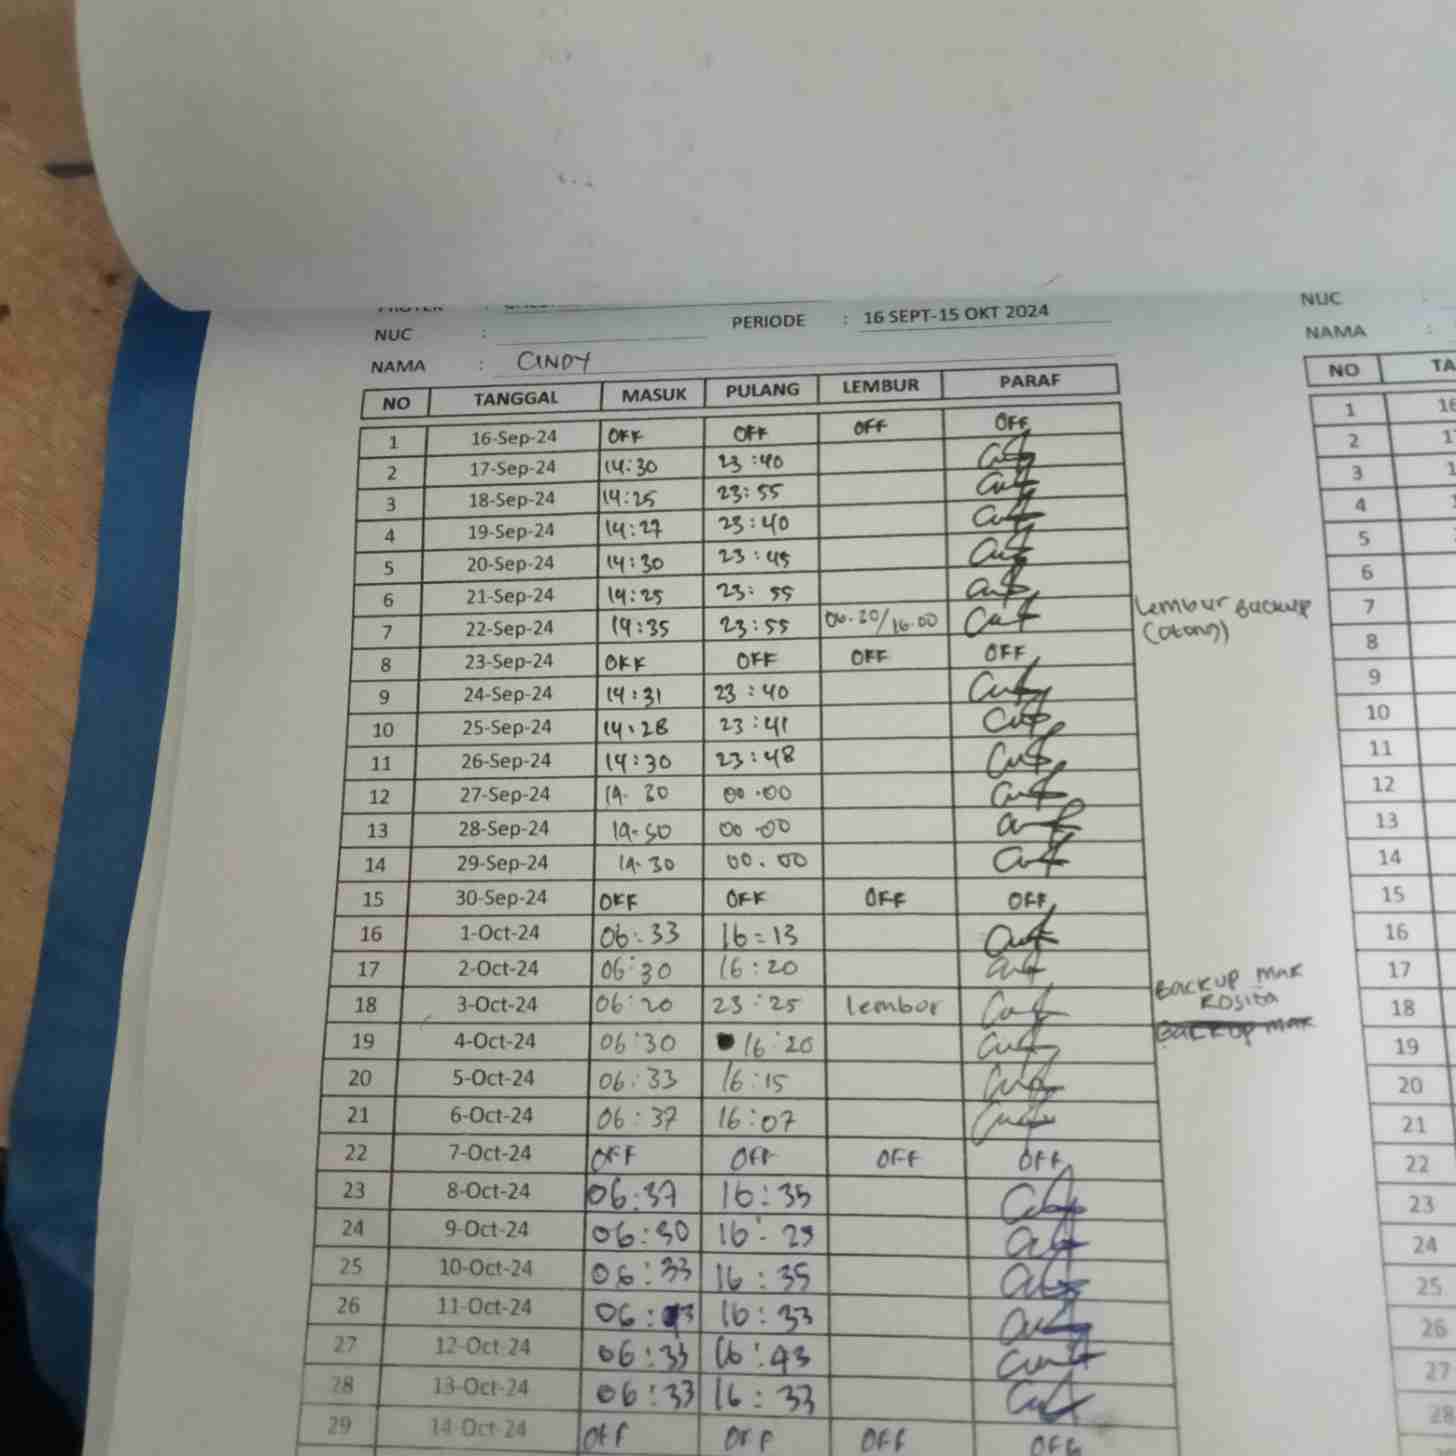 NUC :
PERIODE : 16 SEPT-15 OKT 2024
NAMA : CINDY
NO TANGGAL MASUK PULANG LEMBUR PARAF
1 16-Sep-24 OFF OFF OFF OFF
2 17-Sep-24 14:30 23:40
3 18-Sep-24 14:25 23:55
4 19-Sep-24 14:27 23:40
5 20-Sep-24 14:30 23:45
6 21-Sep-24 14:25 23:55
7 22-Sep-24 14:35 23:55 06.30/16.00 Lembur Backup
(Otong)
8 23-Sep-24 OFF OFF OFF OFF
9 24-Sep-24 14:31 23:40
10 25-Sep-24 14:28 23:41
11 26-Sep-24 14:30 23:48
12 27-Sep-24 14.30 00.00
13 28-Sep-24 00.00
14 29-Sep-24 14.30 00.00
15 30-Sep-24 OFF OFF OFF OFF
16 1-Oct-24 06:33 16=13
17 2-Oct-24 06:30 16:20 Backup mak
Rosita
18 3-Oct-24 06:20 23:25 lembur
19 4-Oct-24 06:30 16:20 Backup mak
20 5-Oct-24 06:33 16:15
21 6-Oct-24 06:37 16:07
22 7-Oct-24 OFF OFF OFF OFF
23 8-Oct-24 06:37 16:35
24 9-Oct-24 06:30 16:29
25 10-Oct-24 06:33 16:35
26 11-Oct-24 16:33
27 12-Oct-24 06:33 16:43
28 13-Oct-24 06:33 16:33
29 14-Oct-24 OFF OFF OFF OFF
NUC :
NAMA :
NO TA
1 16
2 1
3 1
4
5
6
7
8
9
10
11
12
13
14
15
16
17
18
19
20
21
22
23
24
25
26
27
28